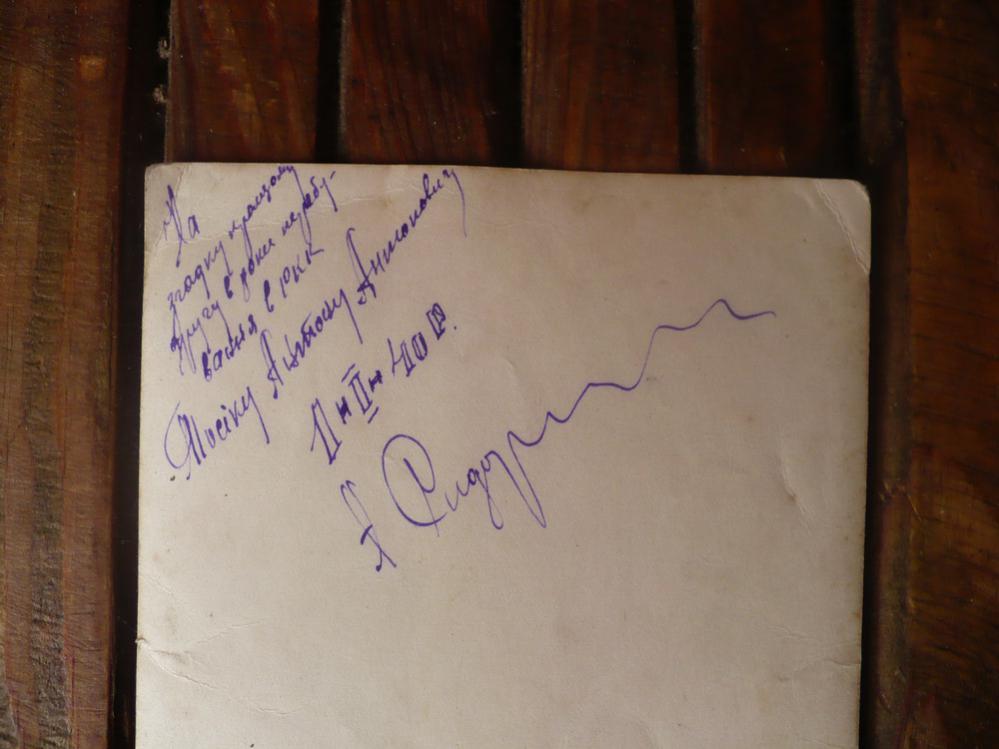 На
згадку кращому
другу в роки перебу-
вання в РКК
Мосіку Антону Антоновичу
II 40 р.